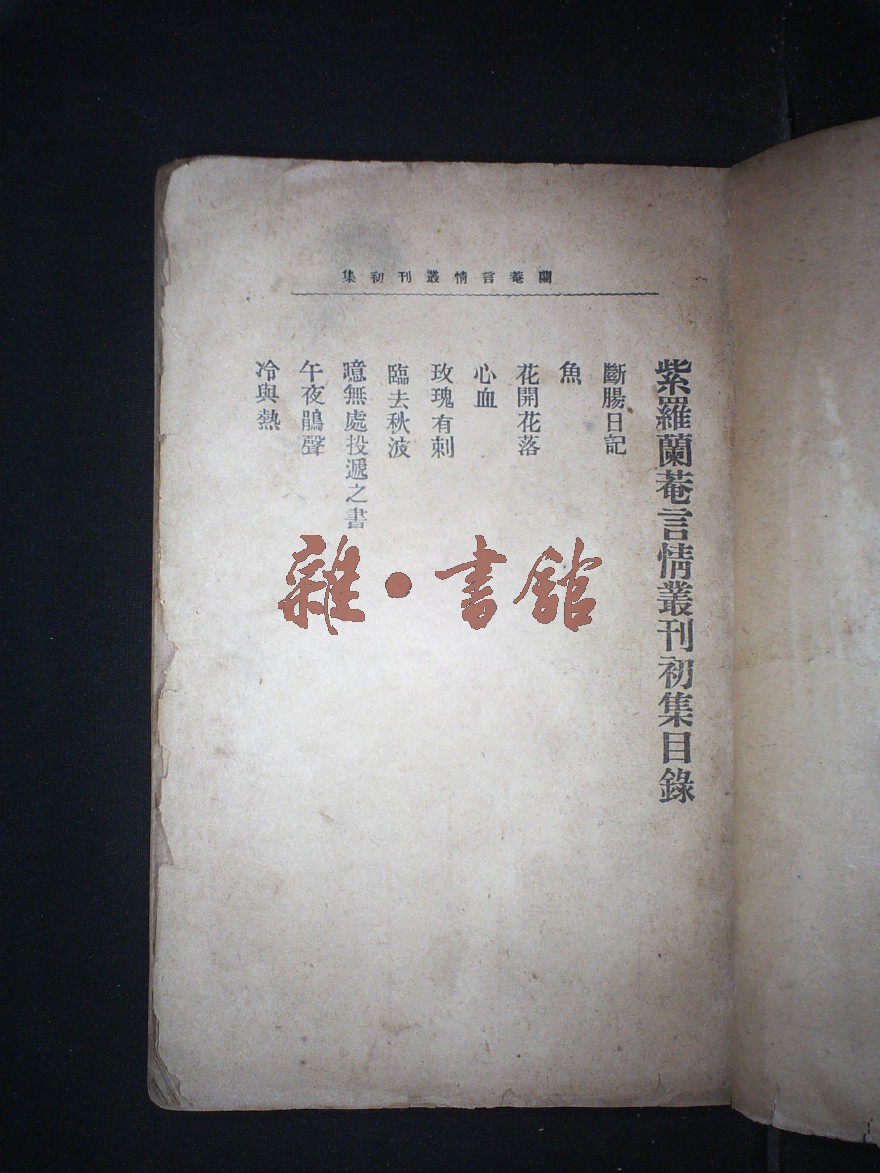 蘭菴言情叢刊初集
紫羅蘭菴言情叢刊初集目錄
斷腸日記
魚
花開花落
心血
玫瑰有刺
臨去秋波
噫無處投遞之書
午夜鵑聲
冷與熱
雜·書館